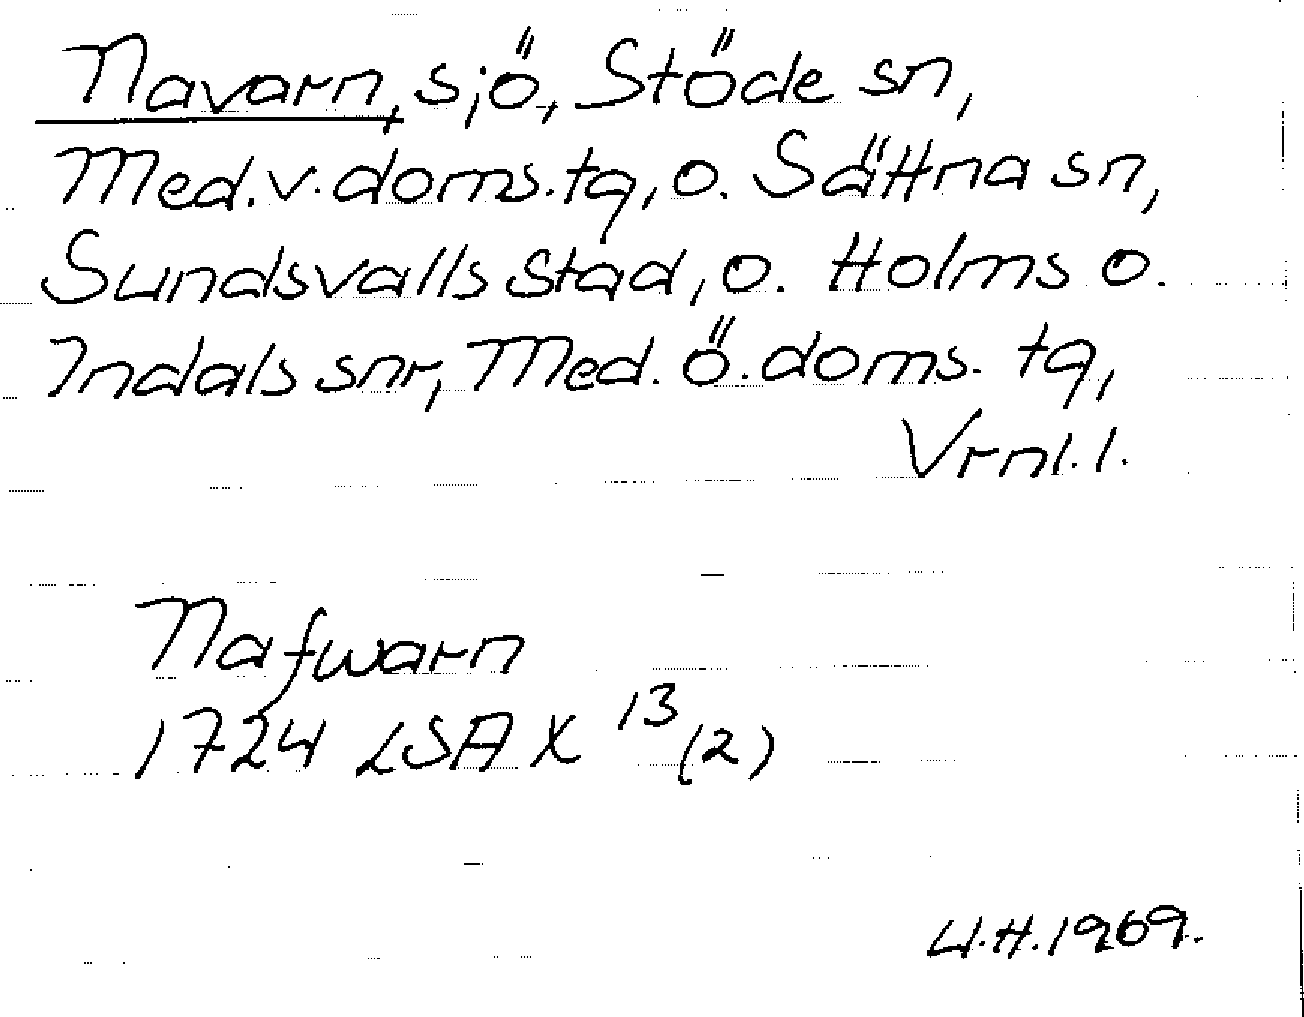 Navarn, sjö, Stöde sn,
Med.v.doms.tg, o. Sättna sn,
Sundsvalls stad, o. Holms o.
Indals snr, Med. ö. doms. tg,
Vrnl. l.
Nafwarn
1724 LSA X 13 (2)
U.H. 1969.